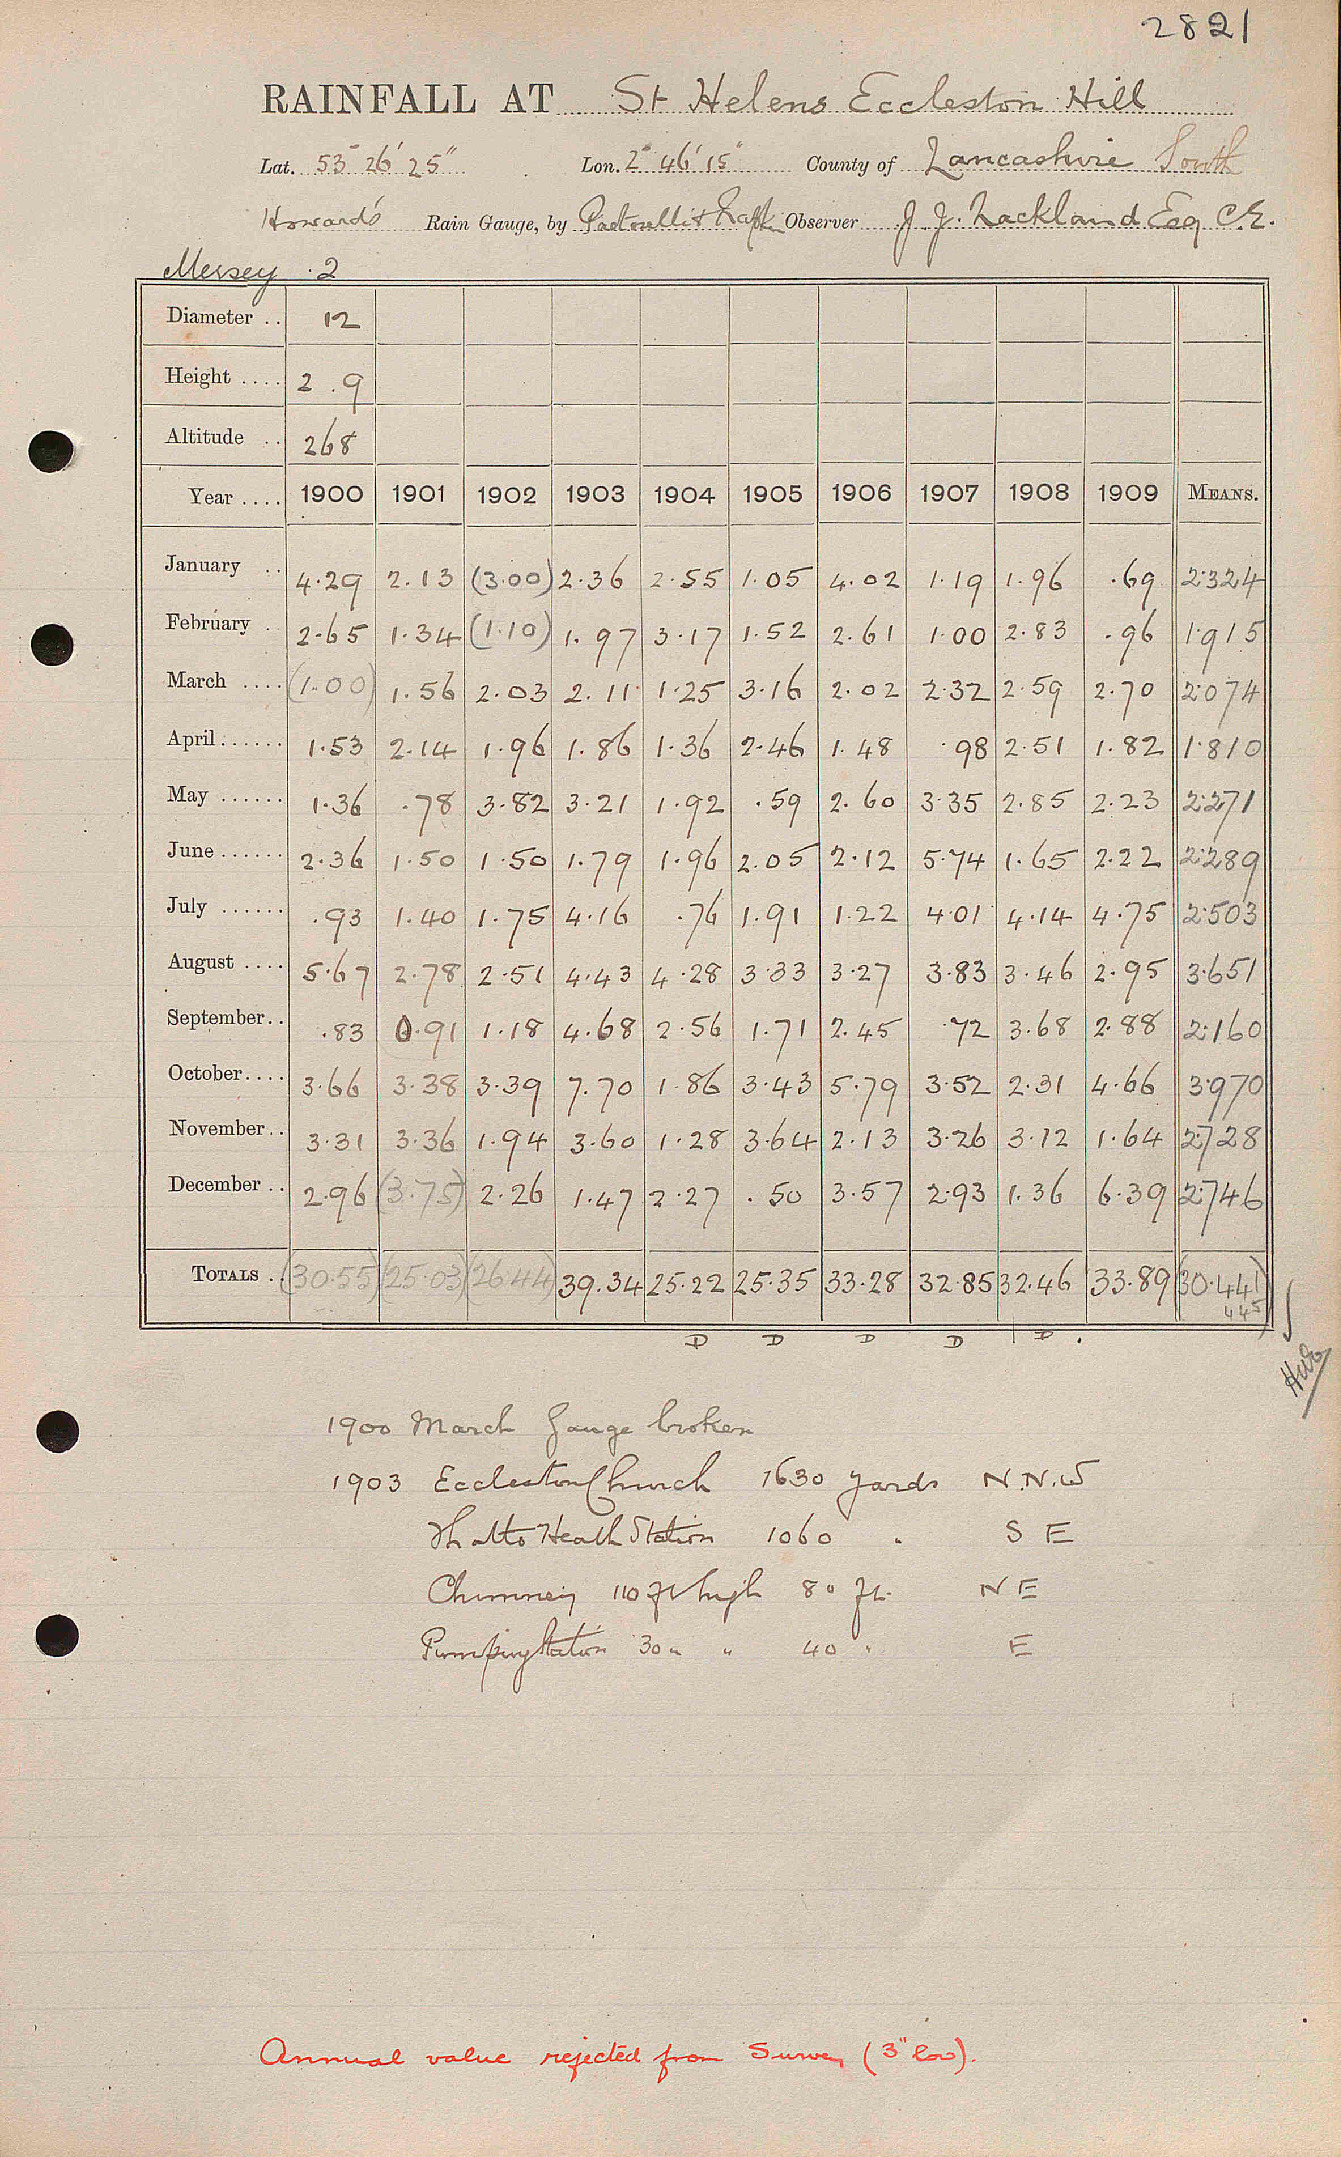 2821
RAINFALL AT St Helens Eccleston Hill
Lat. 53° 26' 25" Lon. 2° 46' 15" County of Lancashire South
Howard's Rain Gauge, by Observer J J. Lackland Esq C.E.
Mersey .2
Diameter .. 12
Height .... 2 . 9
Altitude .. 268
Year .... 1900 1901 1902 1903 1904 1905 1906 1907 1908 1909 MEANS.
January .. 4.29 2.13 (3.00) 2.36 2.55 1.05 4.02 1.19 1.96 .69 2.324
February . 2.65 1.34 (1.10) 1.97 3.17 1.52 2.61 1.00 2.83 .96 1.915
March .... (1.00) 1.56 2.03 2.11 1.25 3.16 2.02 2.32 2.59 2.70 2.074
April...... 1.53 2.14 1.96 1.86 1.36 2.46 1.48 .98 2.51 1.82 1.810
May ...... 1.36 .78 3.82 3.21 1.92 .59 2.60 3.35 2.85 2.23 2.271
June ...... 2.36 1.50 1.50 1.79 1.96 2.05 2.12 5.74 1.65 2.22 2.289
July ...... .93 1.40 1.75 4.16 .76 1.91 1.22 4.01 4.14 4.75 2.503
August .... 5.67 2.78 2.51 4.43 4.28 3.33 3.27 3.83 3.46 2.95 3.651
September.. .83 0.91 1.18 4.68 2.56 1.71 2.45 .72 3.68 2.88 2.160
October.... 3.66 3.38 3.39 7.70 1.86 3.43 5.79 3.52 2.31 4.66 3.970
November.. 3.31 3.36 1.94 3.60 1.28 3.64 2.13 3.26 3.12 1.64 2.728
December .. 2.96 (3.75) 2.26 1.47 2.27 .50 3.57 2.93 1.36 6.39 2.746
TOTALS .. (30.55) (25.03) (26.44) 39.34 25.22 25.35 33.28 32.85 32.46 33.89 (30.441)
445
D D D D D.
1900 March Gauge broken
1903 Eccleston Church 1630 yards N.N.W
Thatto Heath Station 1060 " S E
Chimney 110 ft high 80 ft. N E
Pumping Station 30 " " 40 " E
Annual value rejected from Survey (3" low).